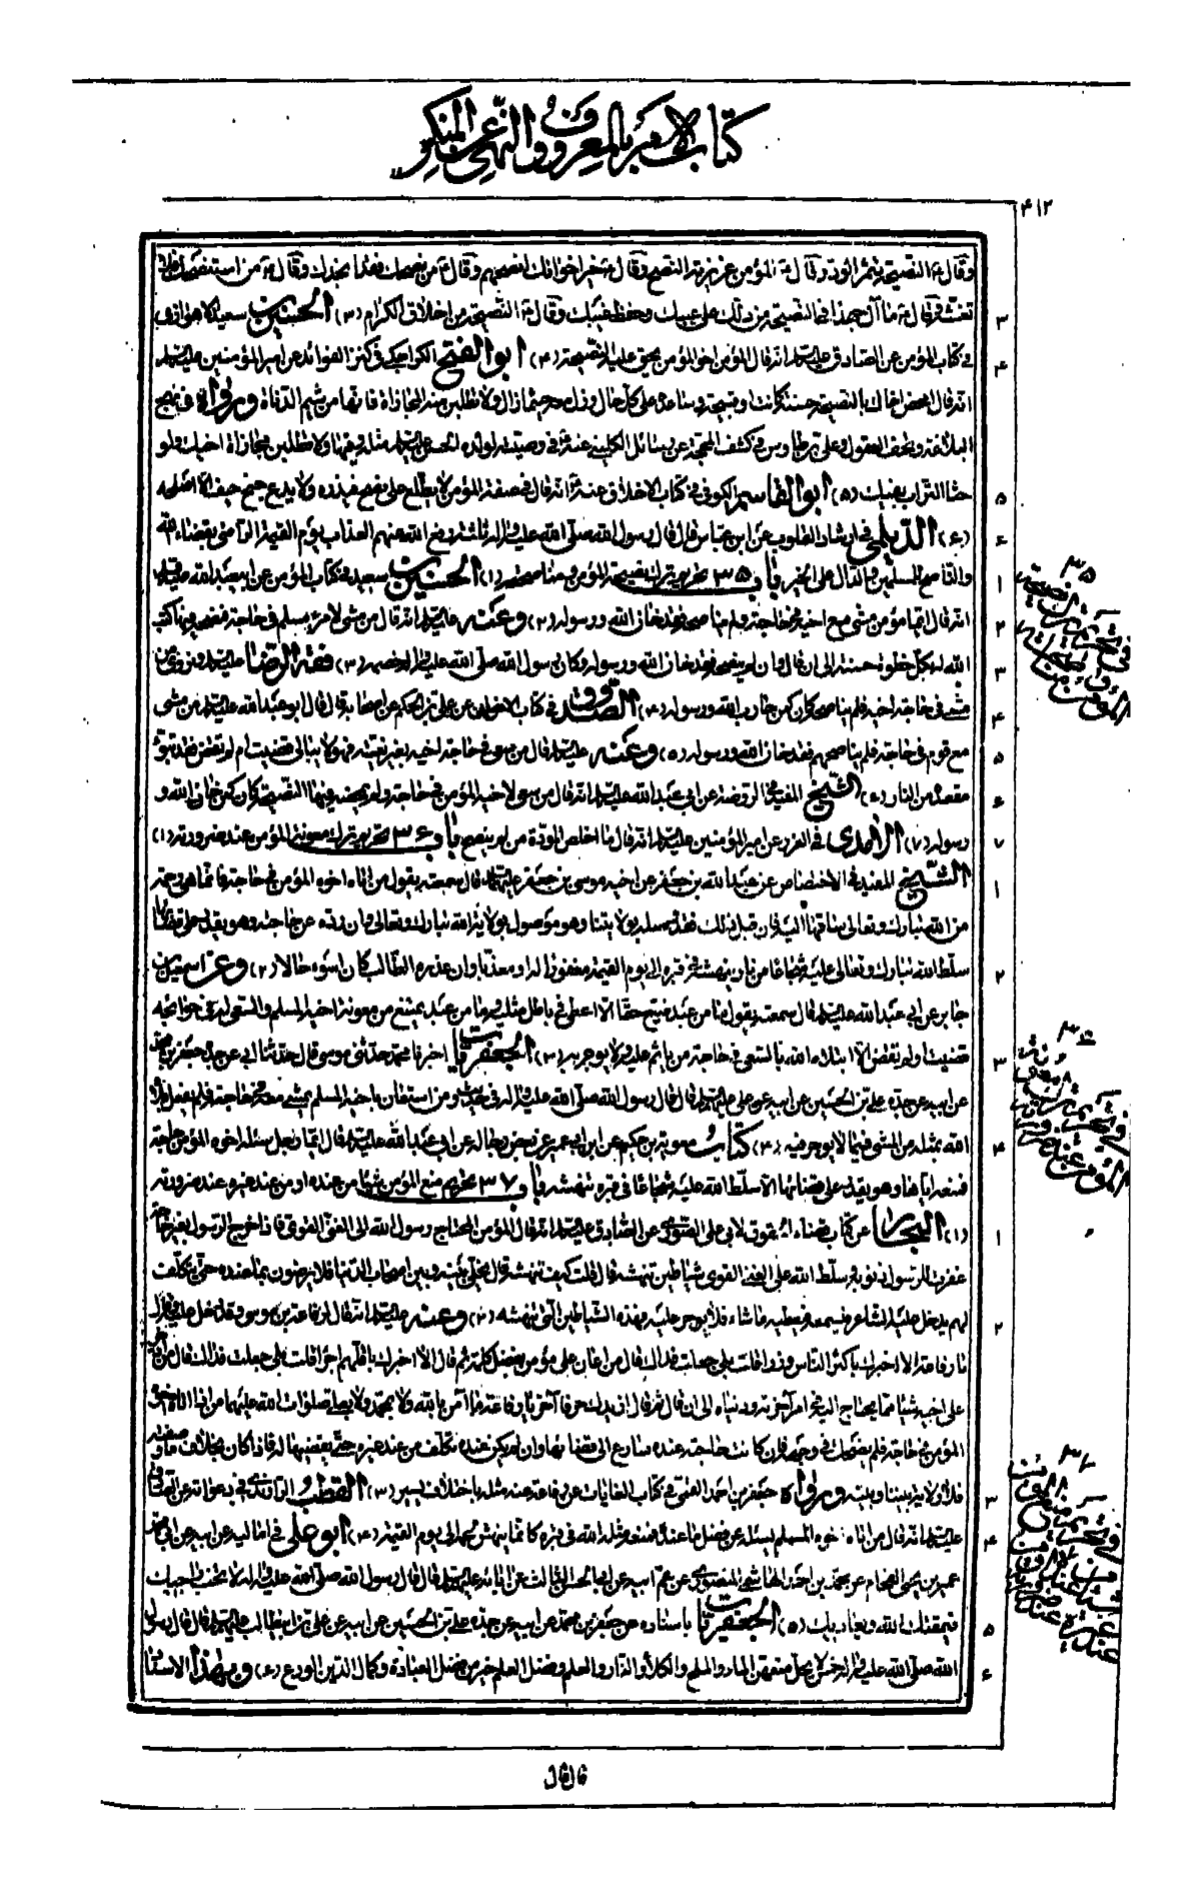 كتاب الأمر بالمعروف والنهي عن المنكر
٤١٢
وقال ع النصيحة يثمر الود وقال ع المؤمن غريزته النصح وقال ع خير اخوانك انصحهم وقال ع من نصحك فقد انجدك وقال ع من استنصحك فلا
تغشه وقال ع ما آل جهدا في النصيحة من دلك على عيبك وحفظ غيبك وقال ع النصيحة من اخلاق الكرام (٣) الحسين بن سعيد الاهوازي
في كتاب المؤمن عن الصادق عليه السلام انه قال المؤمن اخو المؤمن يحق عليه النصيحة (٤) ابو الفتح الكراجكي في كنز الفوائد عن امير المؤمنين عليه السلام
انه قال امحض اخاك بالنصيحة حسنة كانت او قبيحة وساعده على كل حال وزل معه حيثما زال ولا تطلبن منه المجازاة فانها من شيم الدناة ورواه في نهج
البلاغة وتحف العقول وعلي بن طاوس في كشف المحجة عن رسائل الكليني عنه ع في وصيته لولده الحسن عليه السلام مثله وفيها ولا تطلبن مجازاة اخيك ولو
حثا التراب بفيك (٥) ابو القاسم الكوفي في كتاب الاخلاق عنه ع انه قال في صفة المؤمن لا يطلع على نصح فيذره ولا يدع جنح حيف الا اصلحه
(٦) الديلمي في ارشاد القلوب عن ابن عباس قال قال رسول الله صلى الله عليه واله ثلاثة رفع الله عنهم العذاب يوم القيمة الراضي بقضاء الله
والناصح للمسلمين والدال على الخير باب ٣٥ تحريم ترك نصيحة المؤمن ومناصحته (١) الحسين بن سعيد في كتاب المؤمن عن ابي عبد الله عليه السلام
انه قال ايما مؤمن مشى مع اخيه في حاجة ولم يناصحه فقد خان الله ورسوله (٢) وعنه عليه السلام انه قال من مشى لامرئ مسلم في حاجة فنصحه فيها كتب
الله له بكل خطوة حسنة الى ان قال وان لم ينصحه فقد خان الله ورسوله وكان رسول الله صلى الله عليه واله خصمه (٣) فقه الرضا عليه السلام ونروي من
مشى في حاجة اخيه فلم يناصحه كان كمن حارب الله ورسوله (٤) الصدوق في كتاب الاخوان عن علي بن الحكم عن اصحابه قال قال ابو عبد الله عليه السلام من مشى
مع قوم في حاجة فلم يناصحهم فقد خان الله ورسوله (٥) وعنه عليه السلام قال من سعى في حاجة لاخيه بغير نيته فهو لا يبالي قضيت ام لم تقض فقد تبوء
مقعده من النار (٦) الشيخ المفيد في الروضة عن ابي عبد الله عليه السلام انه قال من سعى لاخيه المؤمن في حاجة ولم يمحضه فيها النصيحة كان كمن خان الله و
رسوله (٧) الآمدي في الغرر عن امير المؤمنين عليه السلام انه قال ما اخلص المودة من لم ينصح باب ٣٦ تحريم ترك معونة المؤمن عند ضرورته (١)
الشيخ المفيد في الاختصاص عن عبد الله بن جعفر عن اخيه موسى بن جعفر عليهما السلام قال سمعته يقول من اتاه اخوه المؤمن في حاجة فانما هي رحمة
من الله تبارك وتعالى ساقها اليه فان قبل ذلك فقد وصله بولايتنا وهو موصول بولاية الله تبارك وتعالى وان رده عن حاجته وهو يقدر على قضائها
سلط الله تبارك وتعالى عليه شجاعا من نار ينهشه في قبره الى يوم القيمة مغفور له او معذبا وان عذره الطالب كان اسوء حالا (٢) وعن اسمعيل بن
جابر عن ابي عبد الله عليه السلام قال سمعته يقول ما من عبد ضيع حقا الا اعطى في باطل مثليه وما من عبد يمتنع من معونة اخيه المسلم والسعي له في حوائجه
قضيت او لم تقض الا ابتلاه الله بالسعي في حاجة من يأثم عليه ولا يوجر به (٣) الجعفريات اخبرنا محمد حدثني موسى قال حدثنا ابي عن ابيه عن جده جعفر بن محمد
عن ابيه عن جده علي بن الحسين عن ابيه عن علي عليهم السلام قال قال رسول الله صلى الله عليه واله في حديث ومن استعان باخيه المسلم يمشي معه في حاجة فلم يفعل ابتلاه
الله بمثله من المشي فيما لا يوجر فيه (٤) كتاب معوية بن حكيم عن ابن ابي عمير عن بعض رجاله عن ابي عبد الله عليه السلام قال ايما رجل سئله اخوه المؤمن حاجة
فمنعه اياها وهو يقدر على قضائها الا سلط الله عليه شجاعا في قبره تنهشه باب ٣٧ تحريم منع المؤمن شيئا من عنده او من عند غيره عند ضرورته
(١) البحار عن كتاب قضاء الحقوق لابي علي الصوري عن الصادق عليه السلام انه قال المؤمن المحتاج رسول الله الى الغني القوي فاذا خرج الرسول بغير حاجته
غفرت للرسول ذنوبه وسلط الله على الغني القوي شياطين تنهشه قال قلت كيف تنهشه قال يخلى بينه وبين اصحاب الدنيا فلا يرضون بما عنده حتى يتكلف
لهم يدخل عليه الشاعر فيسمعه فيعطيه ما شاء فلا يوجر عليه فهذه الشياطين التي تنهشه (٢) وعنه عليه السلام انه قال لرفاعة بن موسى وقد دخل عليه
يا رفاعة الا اخبرك باكثر الناس وزرا قلت بلى جعلت فداك قال من اعان على مؤمن بفضل كلمة ثم قال الا اخبركم باقلهم اجرا قلت بلى جعلت فداك قال من ادخر
على اخيه شيئا مما يحتاج اليه في امر آخرته ودنياه الى ان قال ثم قال ازيدك حرفا آخر يا رفاعة ما آمن بالله ولا بمحمد ولا بعلي صلوات الله عليهما من اذا اتاه اخوه
المؤمن في حاجة فلم يضحك في وجهه فان كانت حاجته عنده سارع الى قضائها وان لم يكن عنده تكلف من عند غيره حتى يقضيها له فاذا كان بخلاف ما وصفته
فلا ولاية بيننا وبينه ورواه جعفر بن احمد القمي في كتاب الغايات عن رفاعة عنه مثله باختلاف يسير (٣) القطب الراوندي في دعواته عن الصادق
عليه السلام انه قال من اتاه اخوه المسلم يسئله عن فضل ما عنده فمنعه مثله الله في قبره كانما ينهش لحمه الى يوم القيمة (٤) ابو علي في اماليه عن ابيه عن ابي محمد
عن محمد بن احمد الهاشمي المنصوري عن عم ابيه عن ابي الحسن الثالث عن آبائه عليهم السلام قال قال رسول الله صلى الله عليه واله لا يخيب راجيك
فيمقتك الله ويعاديك (٥) الجعفريات باسناده عن جعفر بن محمد عن ابيه عن جده علي بن الحسين عن ابيه عن علي بن ابي طالب عليهم السلام قال قال رسول
الله صلى الله عليه واله خمس لا يحل منعهن الماء والملح والكلاء والنار والعلم وفضل العلم خير من فضل العبادة وكمال الدين الورع (٦) وبهذا الاسناد
قال قال